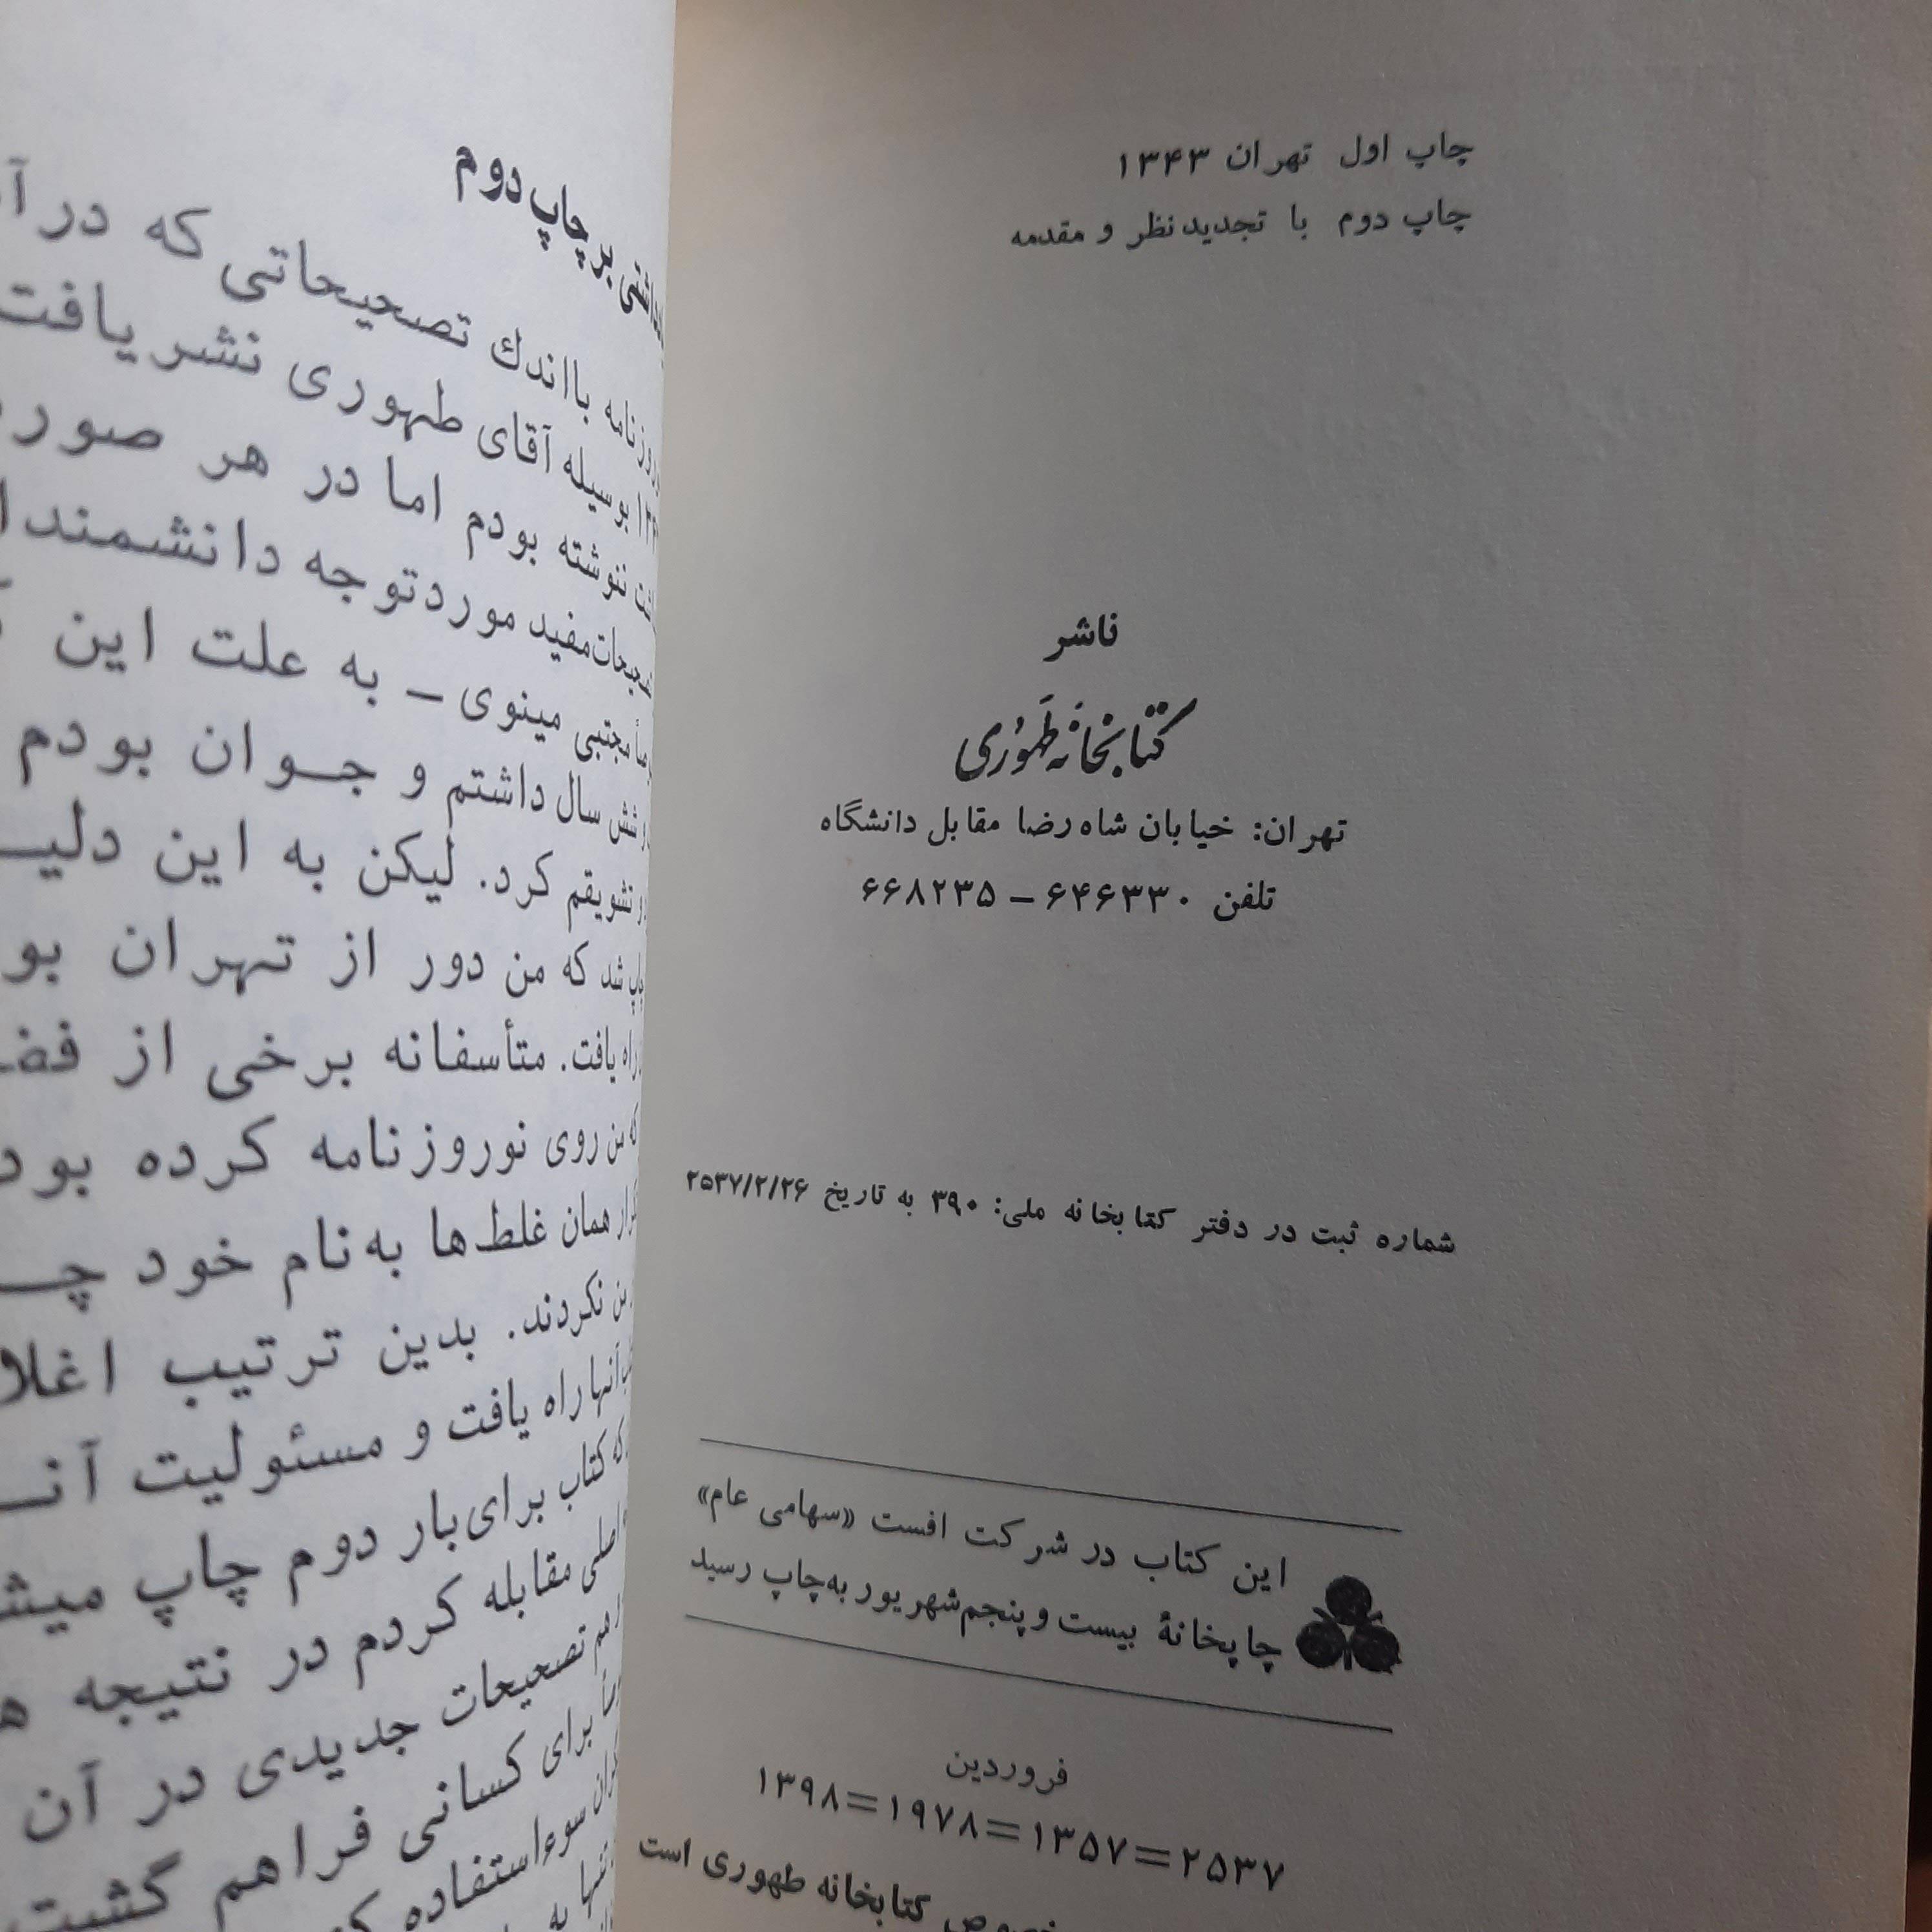 چاپ اول تهران ۱۳۴۳
چاپ دوم با تجدیدنظر و مقدمه
ناشر
کتابخانه طهوری
تهران: خیابان شاهرضا مقابل دانشگاه
تلفن ۶۴۶۳۳۰ – ۶۶۸۲۳۵
شماره ثبت در دفتر کتابخانه ملی: ۳۹۰ به تاریخ ۲۵۳۷/۲/۲۶
این کتاب در شرکت افست «سهامی عام»
چاپخانهٔ بیست و پنجم شهریور به‌چاپ رسید
فروردین
۲۵۳۷=۱۳۵۷=۱۹۷۸=۱۳۹۸
کتابخانه طهوری است
بر چاپ دوم
بااندك تصحیحاتی که در
بوسیله آقای طهوری نشر یافت
ننوشته بودم اما در هر
مفید موردتوجه
مجتبی مینوی – به علت این
شش سال داشتم و جوان بودم
تشویقم کرد. لیکن به این
شد که من دور از تهران
راه یافت. متأسفانه برخی از
که من روی نوروزنامه کرده
همان غلط‌ها به‌نام خود
نکردند. بدین ترتیب
آنها راه یافت و مسئولیت
که کتاب برای‌بار دوم چاپ
اصلی مقابله کردم در نتیجه
هم تصحیحات جدیدی در آن
برای کسانی فراهم گشت
سوءاستفاده